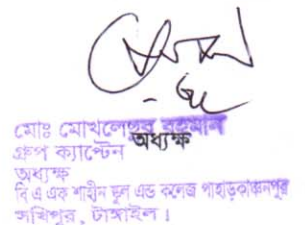 মোঃ মোখলেছুর রহমান
অধ্যক্ষ
গ্রুপ ক্যাপ্টেন
অধ্যক্ষ
বি এ এফ শাহীন স্কুল এন্ড কলেজ পাহাড়কাঞ্চনপুর
সখিপুর, টাঙ্গাইল।